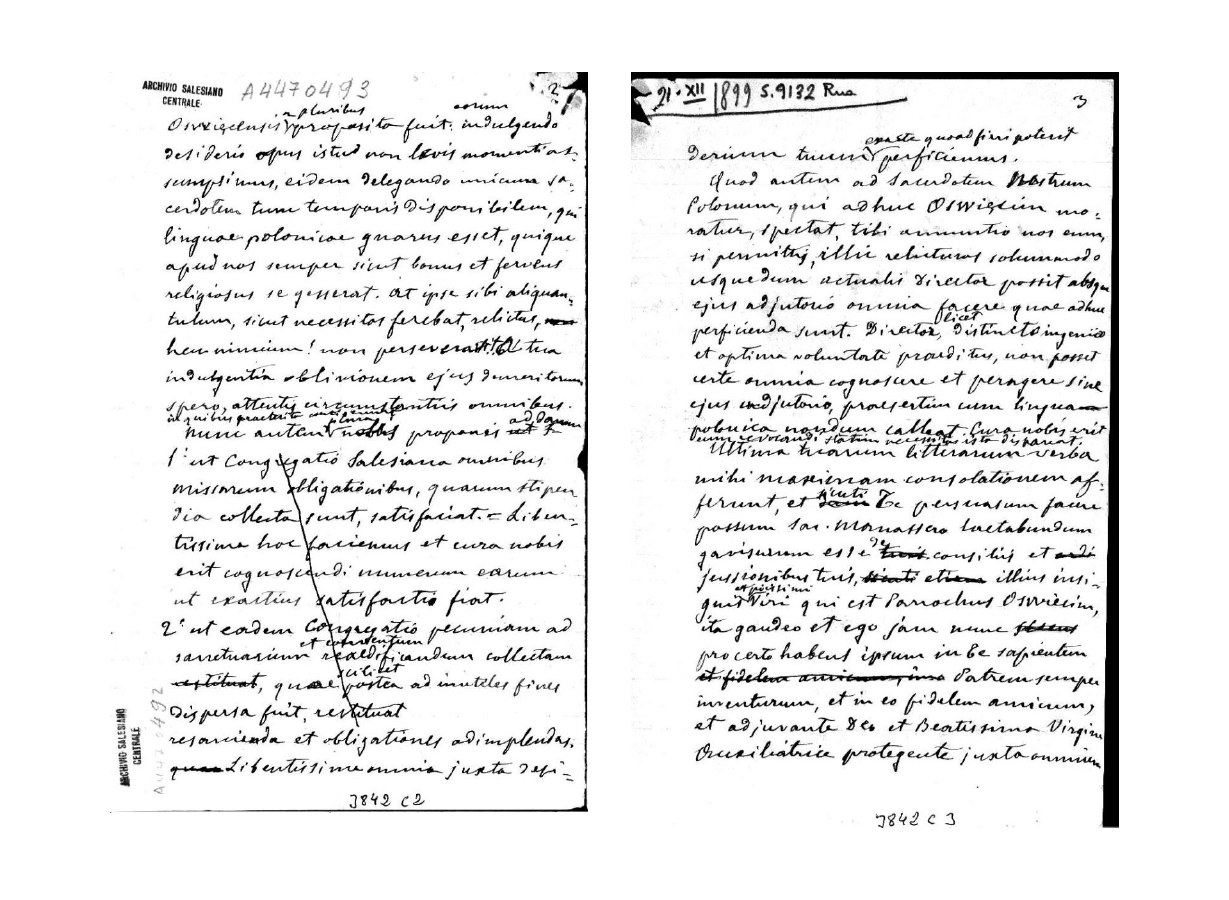 ARCHIVIO SALESIANO
CENTRALE
A4470493
2
a pluribus eorum
Oswięcensis proposito fuit: indulgendo
desiderio opus istud non levis momenti as-
sumpsimus, eidem delegando unicum sa-
cerdotem tum temporis disponibilem, qui
linguae polonicae gnarus esset, quique
apud nos semper sicut bonus et fervens
religiosus se gesserat. At ipse sibi aliquan-
tulum, sicut necessitas ferebat, relictus,
heu nimium! non perseveravit. At tua
indulgentia oblivionem ejus demeritorum
spero, attentis circumstantiis omnibus.
in quibus
Nunc autem nobis proponis
ad
1° ut Congregatio Salesiana omnibus
missarum obligationibus, quarum stipen
dia collecta sunt, satisfaciat. = Liben-
tissime hoc faciemus et cura nobis
erit cognoscendi numerum earum
ut exactius satisfactio fiat.
2° ut eadem Congregatio pecuniam ad
et conventum
sanctuarium reaedificandum collectam
scilicet
restituat, quae postea ad inutiles fines
dispersa fuit, restituat
resarcienda et obligationes adimplendas.
quae Libentissime omnia juxta desi-
ARCHIVIO SALESIANO
CENTRALE
A4470492
3842 C2
21·XII 1899 S.9132 Rua
3
exacte quoad fieri poterit
derium tuum perficiemus.
Quod autem ad Sacerdotem Nostrum
Polonum, qui adhuc Oswięcim mo-
ratur, spectat, tibi annuntio nos eum,
si permittis, illic relicturos solummodo
usquedum actualis Director possit absque
ejus adjutorio omnia facere quae adhuc
licet
perficienda sunt. Director, distincto ingenio
et optima voluntate praeditus, non posset
certe omnia cognoscere et peragere sine
ejus adjutorio, praesertim cum linguam
polonica nondum calleat. Cura nobis erit
eum revocandi statim necessitas ista dispareat.
Ultima tuarum litterarum verba
mihi maximam consolationem af-
sicuti
ferunt, et Te persuasum facere
possum Sac. Manassero laetabundum
de
gavisurum esse consiliis et
jussionibus tuis, sicuti etiam illius insi-
et piissimi
gnis Viri qui est Parrochus Oswięcim,
ita gaudeo et ego jam nunc
pro certo habens ipsum in Te sapientem
et fidelem amicum, imo Patrem semper
inventurum, et in eo fidelem amicum;
et adjuvante Deo et Beatissima Virgine
Auxiliatrice protegente juxta omnium
3842 C 3